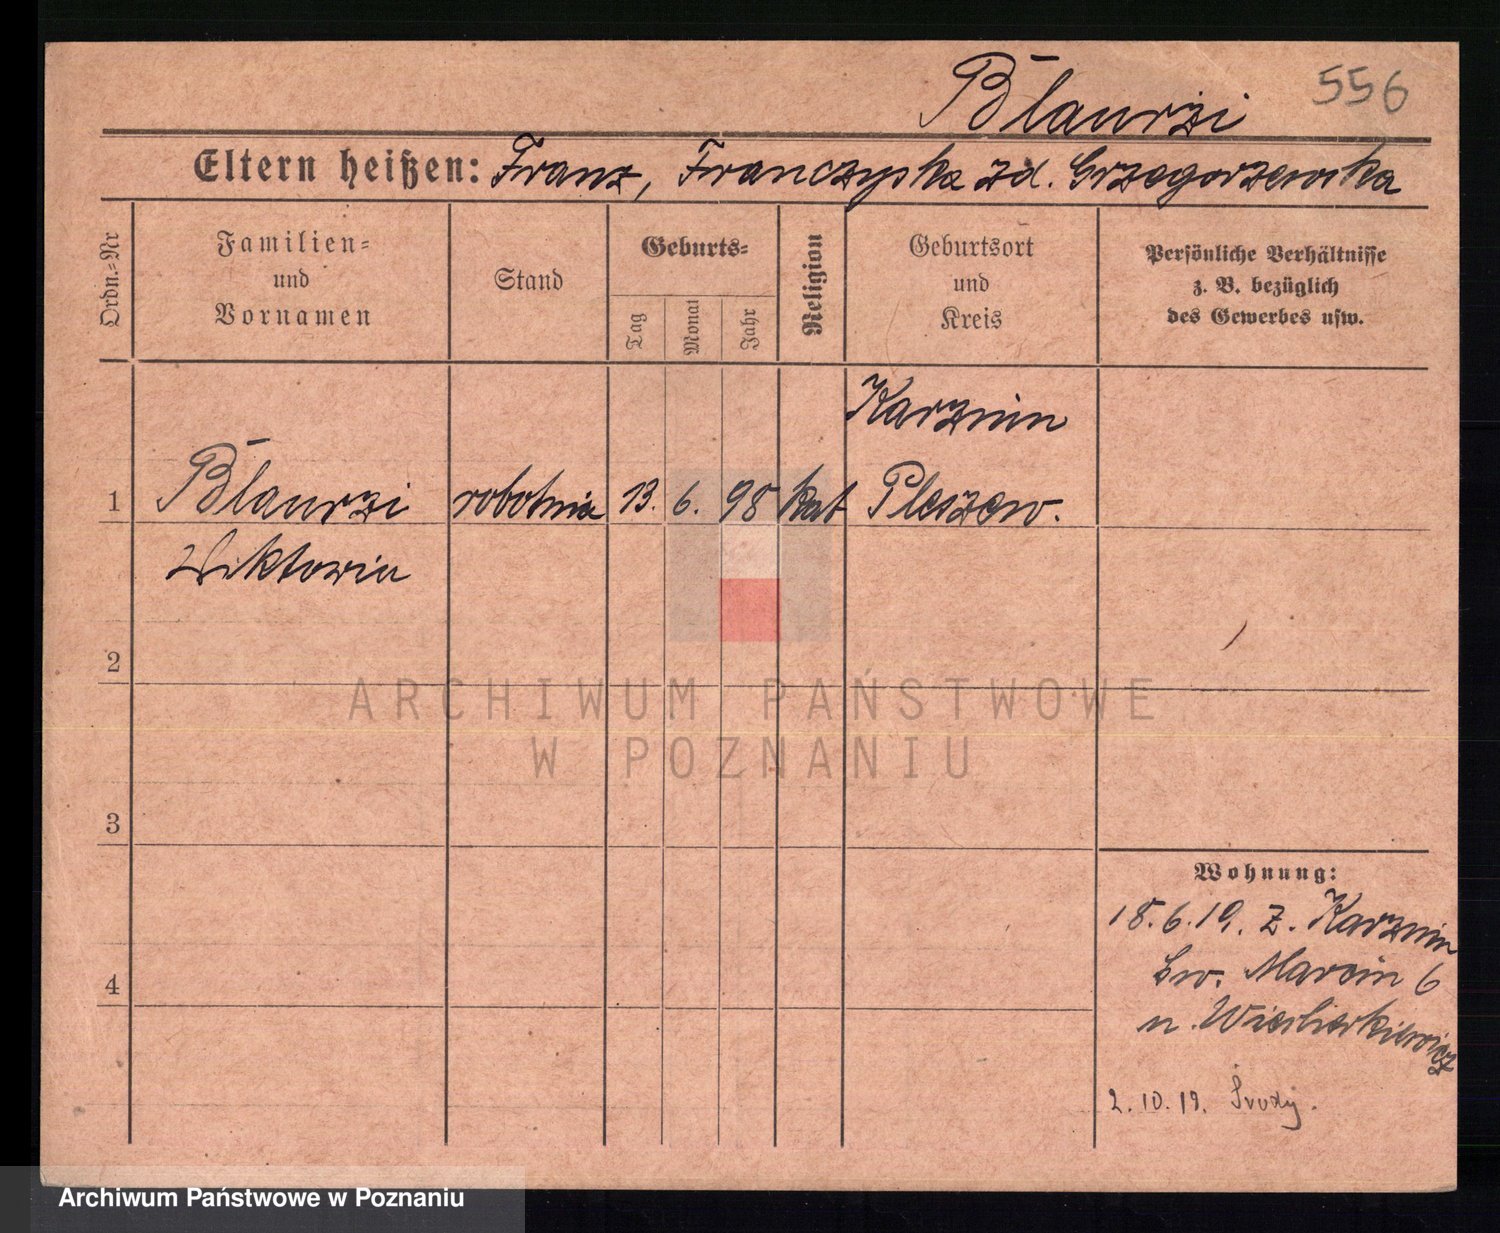 Blaurzi
556
Eltern heißen: Franz, Franczyska zd. Grzegorzewska
Ordn.-Nr
Familien-
und
Vornamen
Stand
Geburts-
Tag
Monat
Jahr
Religion
Geburtsort
und
Kreis
Persönliche Verhältnisse
z. B. bezüglich
des Gewerbes usw.
Karzmin
1
Blaurzi robotnia 13. 6. 98 kat Pleszew.
Wiktoria
2
ARCHIWUM PAŃSTWOWE
W POZNANIU
3
Wohnung:
18.6.19. z. Karzmin
św. Marcin 6
4
2.10.19. Środy.
Archiwum Państwowe w Poznaniu